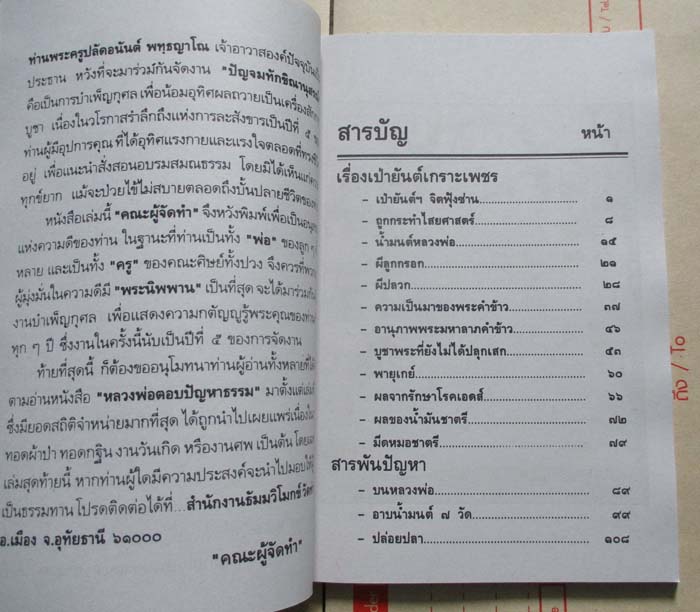 ท่านพระครูปลัดอนันต์ พทฺธญาโณ เจ้าอาวาสองค์ปัจจุบัน
ประธาน หวังที่จะมาร่วมกันจัดงาน "ปัญจมทักขิณานุ
คือเป็นการบำเพ็ญกุศล เพื่อน้อมอุทิศผลถวายเป็นเครื่อง
บูชา เนื่องในวโรกาสรำลึกถึงแห่งการละสังขารเป็นปีที่ ๕
ท่านผู้มีอุปการคุณ ที่ได้อุทิศแรงกายและแรงใจตลอดที่
อยู่ เพื่อแนะนำสั่งสอนอบรมสมณธรรม โดยมิได้เห็นแก่
ทุกข์ยาก แม้จะป่วยไข้ไม่สบายตลอดถึงบั้นปลายชีวิต
หนังสือเล่มนี้ "คณะผู้จัดทำ" จึงหวังพิมพ์เพื่อเป็น
แห่งความดีของท่าน ในฐานะที่ท่านเป็นทั้ง "พ่อ" ของลูก ๆ
หลาย และเป็นทั้ง "ครู" ของคณะศิษย์ทั้งปวง จึงควรที่
ผู้มุ่งมั่นในความดีมี "พระนิพพาน" เป็นที่สุด จะได้มาร่วม
งานบำเพ็ญกุศล เพื่อแสดงความกตัญญูรู้พระคุณของ
ทุก ๆ ปี ซึ่งงานในครั้งนี้นับเป็นปีที่ ๕ ของการจัดงาน
ท้ายที่สุดนี้ ก็ต้องขออนุโมทนาท่านผู้อ่านทั้งหลายที่
ตามอ่านหนังสือ "หลวงพ่อตอบปัญหาธรรม" มาตั้งแต่
ซึ่งมียอดสถิติจำหน่ายมากที่สุด ได้ถูกนำไปเผยแพร่เนื่องใน
ทอดผ้าป่า ทอดกฐิน งานวันเกิด หรืองานศพ เป็นต้น
เล่มสุดท้ายนี้ หากท่านผู้ใดมีความประสงค์จะนำไปมอบ
เป็นธรรมทาน โปรดติดต่อได้ที่...สำนักงานธัมมวิโมกข์
อ.เมือง จ.อุทัยธานี ๖๑๐๐๐
"คณะผู้จัดทำ"
สารบัญ หน้า
เรื่องเป่ายันต์เกราะเพชร
– เป่ายันต์ฯ จิตฟุ้งซ่าน ๑
– ถูกกระทำไสยศาสตร์ ๘
– น้ำมนต์หลวงพ่อ ๑๕
– ผีลูกกรอก ๒๑
– ผีปลวก ๒๘
– ความเป็นมาของพระคำข้าว ๓๗
– อานุภาพพระมหาลาภคำข้าว ๔๖
– บูชาพระที่ยังไม่ได้ปลุกเสก ๕๓
– พายุเกย์ ๖๐
– ผลจากรักษาโรคเอดส์ ๖๖
– ผลของน้ำมันชาตรี ๗๒
– มีดหมอชาตรี ๗๙
สารพันปัญหา
– บนหลวงพ่อ ๘๙
– อาบน้ำมนต์ ๗ วัด ๙๙
– ปล่อยปลา ๑๐๘
ถึง / To